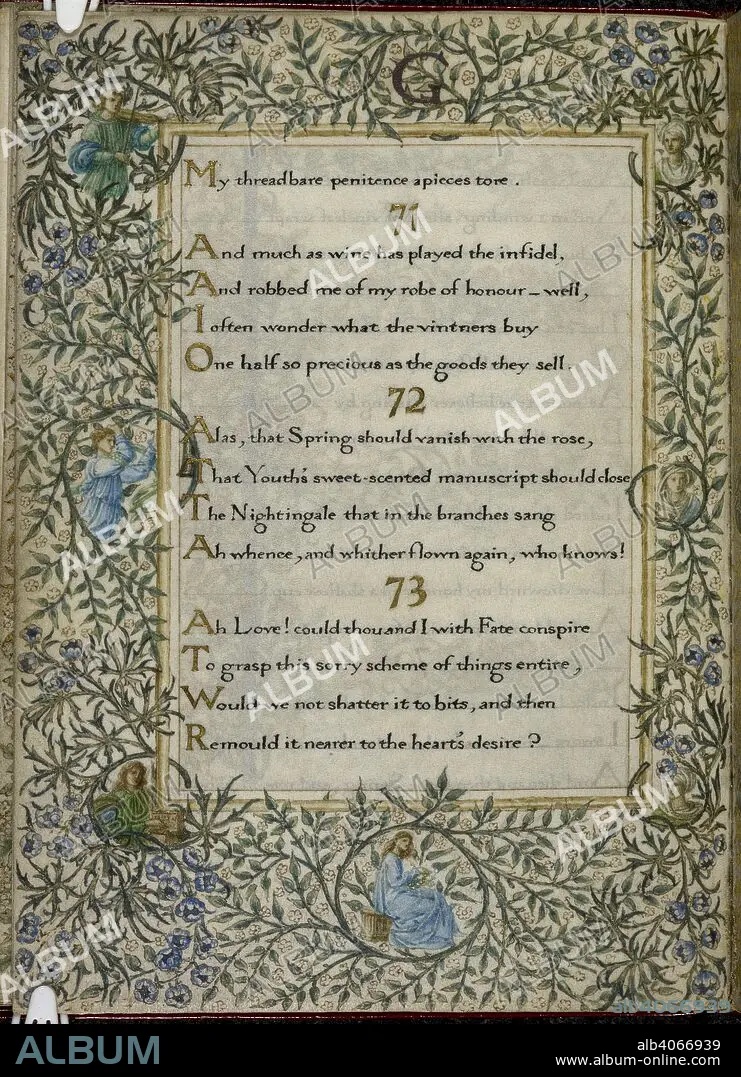 G
My threadbare penitence apieces tore.
71
And much as wine has played the infidel,
And robbed me of my robe of honour – well,
I often wonder what the vintners buy
One half so precious as the goods they sell.
72
Alas, that Spring should vanish with the rose,
That Youth's sweet-scented manuscript should close
The Nightingale that in the branches sang
Ah whence, and whither flown again, who knows!
73
Ah Love! could thou and I with Fate conspire
To grasp this sorry scheme of things entire,
Would we not shatter it to bits, and then
Remould it nearer to the heart's desire?
ALBUM
alb4066939
www.album-online.com